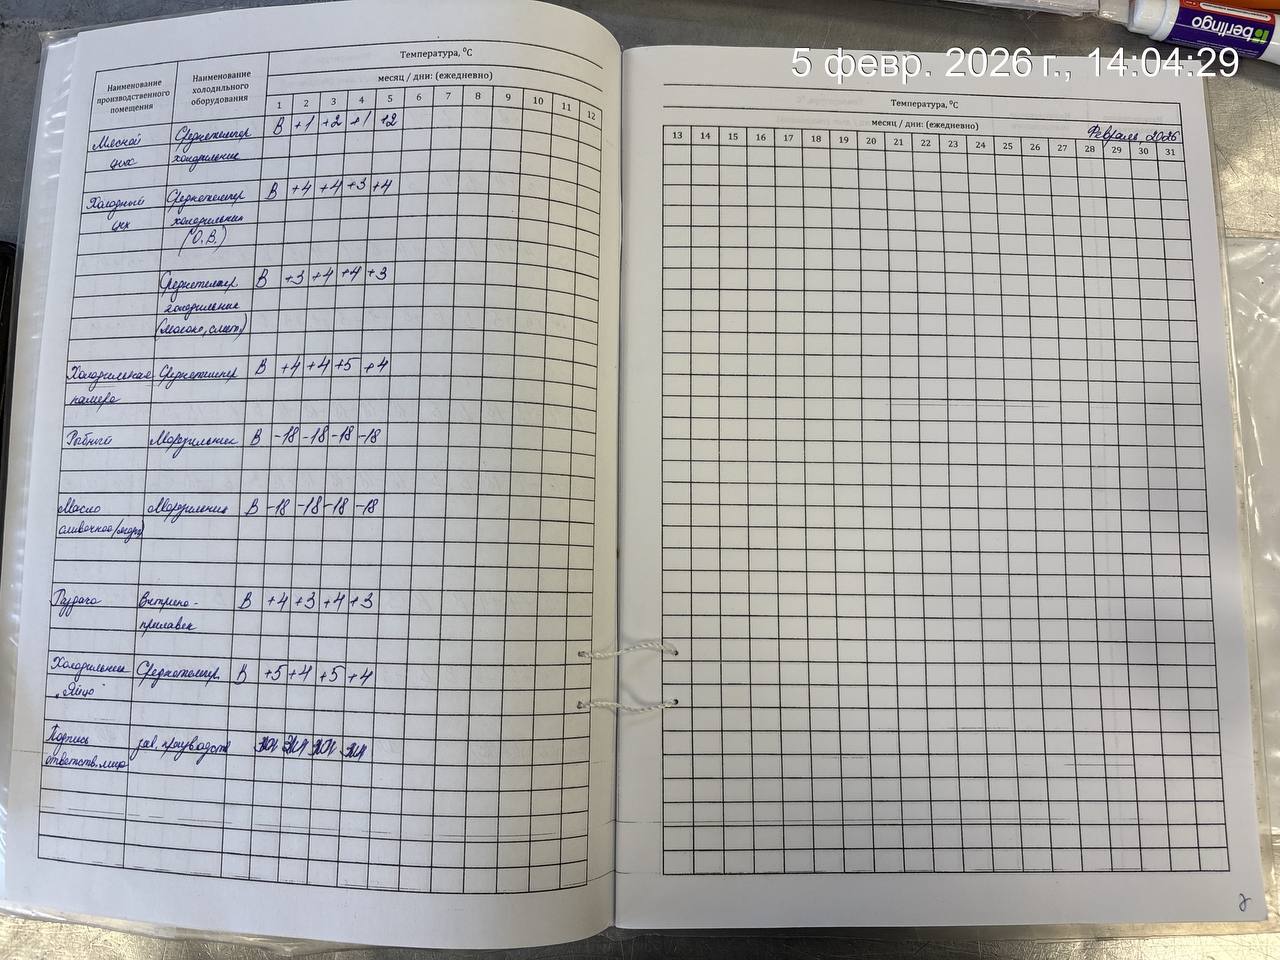 berlingo
5 февр. 2026 г., 14:04:29
Наименование производственного помещения
Наименование холодильного оборудования
Температура, ⁰С
месяц / дни: (ежедневно)
1 2 3 4 5 6 7 8 9 10 11 12
Мясной Среднетемпер В +1 +2 +1 +2
цех холодильник
Холодный Среднетемпер В +4 +4 +3 +4
цех холодильник
(О.В.)
Среднетемпер. В +3 +4 +4 +3
холодильник
(молоко, смет.)
Холодильная Среднетемпер В +4 +4 +5 +4
камера
Рыбный Морозильник В -18 -18 -18 -18
Масло Морозильник В -18 -18 -18 -18
сливочное
Раздача Витрина- В +4 +3 +4 +3
прилавок
Холодильник Среднетемпер. В +5 +4 +5 +4
"Яйцо"
Подпись зав. производств
ответств. лица
Температура, ⁰С
месяц / дни: (ежедневно)
Февраль, 2026
13 14 15 16 17 18 19 20 21 22 23 24 25 26 27 28 29 30 31